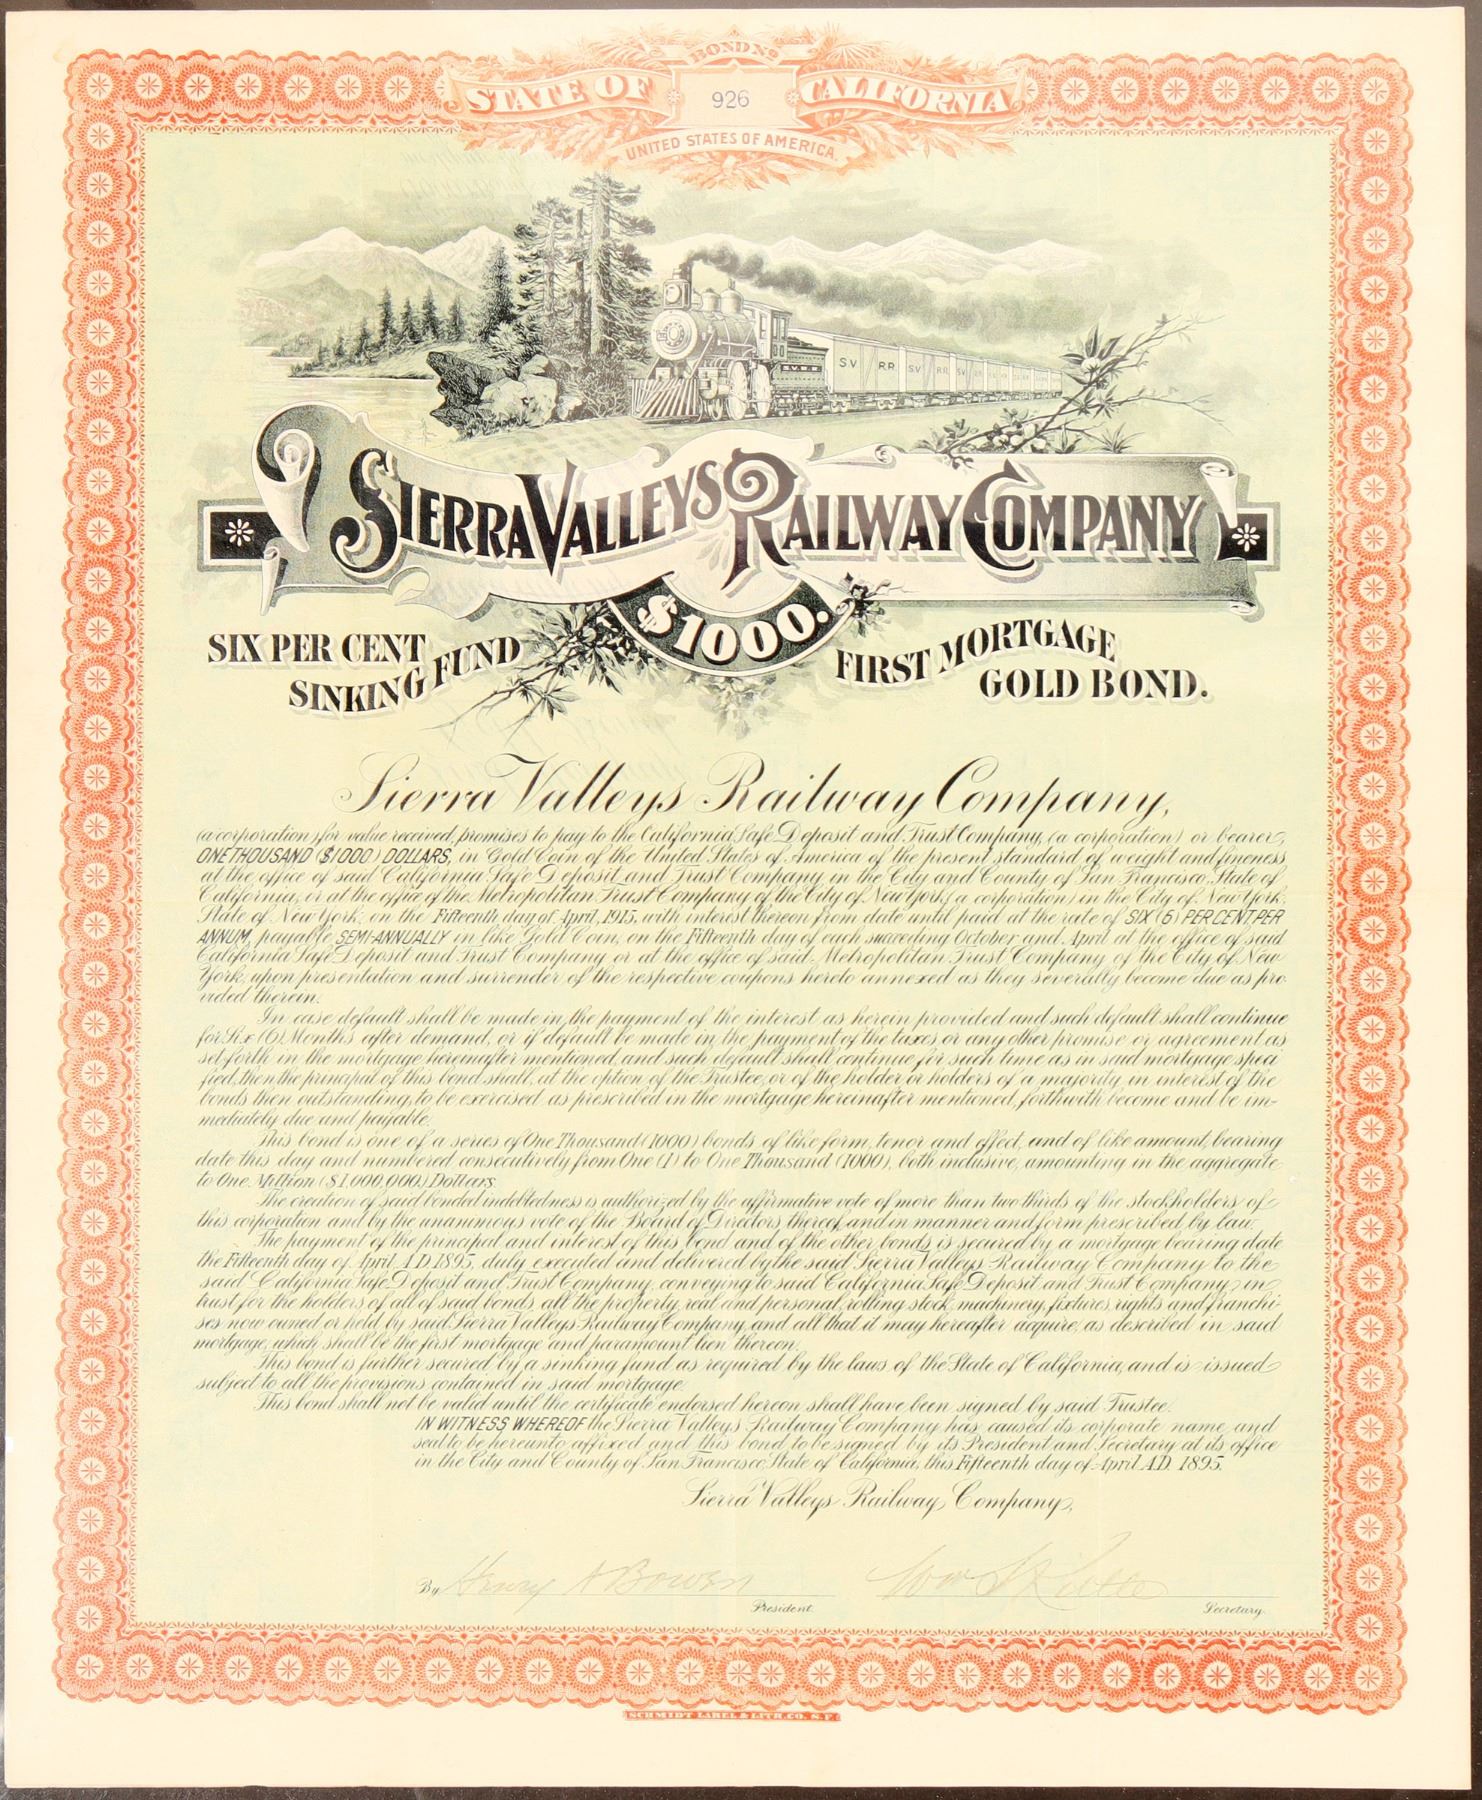 BOND No
STATE OF 926 CALIFORNIA
UNITED STATES OF AMERICA.
S.V.R.R. SV RR. SV RR. SV
SIERRA VALLEYS RAILWAY COMPANY
$1000.
SIX PER CENT SINKING FUND
FIRST MORTGAGE GOLD BOND.
Sierra Valleys Railway Company,
(a corporation) for value received, promises to pay to the California Safe Deposit and Trust Company, (a corporation) or bearer,
ONE THOUSAND ($1000) DOLLARS, in Gold Coin of the United States of America of the present standard of weight and fineness
at the office of said California Safe Deposit and Trust Company in the City and County of San Francisco, State of
California, or at the office of the Metropolitan Trust Company of the City of New York, (a corporation) in the City of New York,
State of New York, on the Fifteenth day of April, 1915, with interest thereon from date until paid at the rate of SIX (6) PER CENT PER
ANNUM, payable SEMI-ANNUALLY in like Gold Coin, on the Fifteenth day of each succeeding October and April at the office of said
California Safe Deposit and Trust Company or at the office of said Metropolitan Trust Company of the City of New
York, upon presentation and surrender of the respective coupons hereto annexed as they severally become due as pro-
vided therein.
In case default shall be made in the payment of the interest as herein provided and such default shall continue
for Six (6) Months after demand, or if default be made in the payment of the taxes or any other promise or agreement as
set forth in the mortgage hereinafter mentioned, and such default shall continue for such time as in said mortgage speci-
fied, then the principal of this bond shall, at the option of the Trustee, or of the holder or holders of a majority in interest of the
bonds then outstanding, to be exercised as prescribed in the mortgage hereinafter mentioned, forthwith become and be im-
mediately due and payable.
This bond is one of a series of One Thousand (1000) bonds of like form, tenor and effect, and of like amount, bearing
date this day and numbered consecutively from One (1) to One Thousand (1000), both inclusive, amounting in the aggregate
to One Million ($1,000,000) Dollars.
The creation of said bonded indebtedness is authorized by the affirmative vote of more than two thirds of the stockholders of
this corporation and by the unanimous vote of the Board of Directors thereof, and in manner and form prescribed by law.
The payment of the principal and interest of this bond and of the other bonds is secured by a mortgage bearing date
the Fifteenth day of April A.D. 1895, duly executed and delivered by the said Sierra Valleys Railway Company to the
said California Safe Deposit and Trust Company, conveying to said California Safe Deposit and Trust Company, in
trust for the holders of all of said bonds, all the property, real and personal, rolling stock, machinery, fixtures, rights and franchi-
ses now owned or held by said Sierra Valleys Railway Company, and all that it may hereafter acquire, as described in said
mortgage, which shall be the first mortgage and paramount lien thereon.
This bond is further secured by a sinking fund as required by the laws of the State of California, and is issued
subject to all the provisions contained in said mortgage.
This bond shall not be valid until the certificate endorsed hereon shall have been signed by said Trustee.
IN WITNESS WHEREOF the Sierra Valleys Railway Company has caused its corporate name and
seal to be hereunto affixed and this bond to be signed by its President and Secretary at its office
in the City and County of San Francisco, State of California, this Fifteenth day of April A.D. 1895.
Sierra Valleys Railway Company,
By Henry A Bowen
President. Secretary.
SCHMIDT LABEL & LITH. CO. S.F.